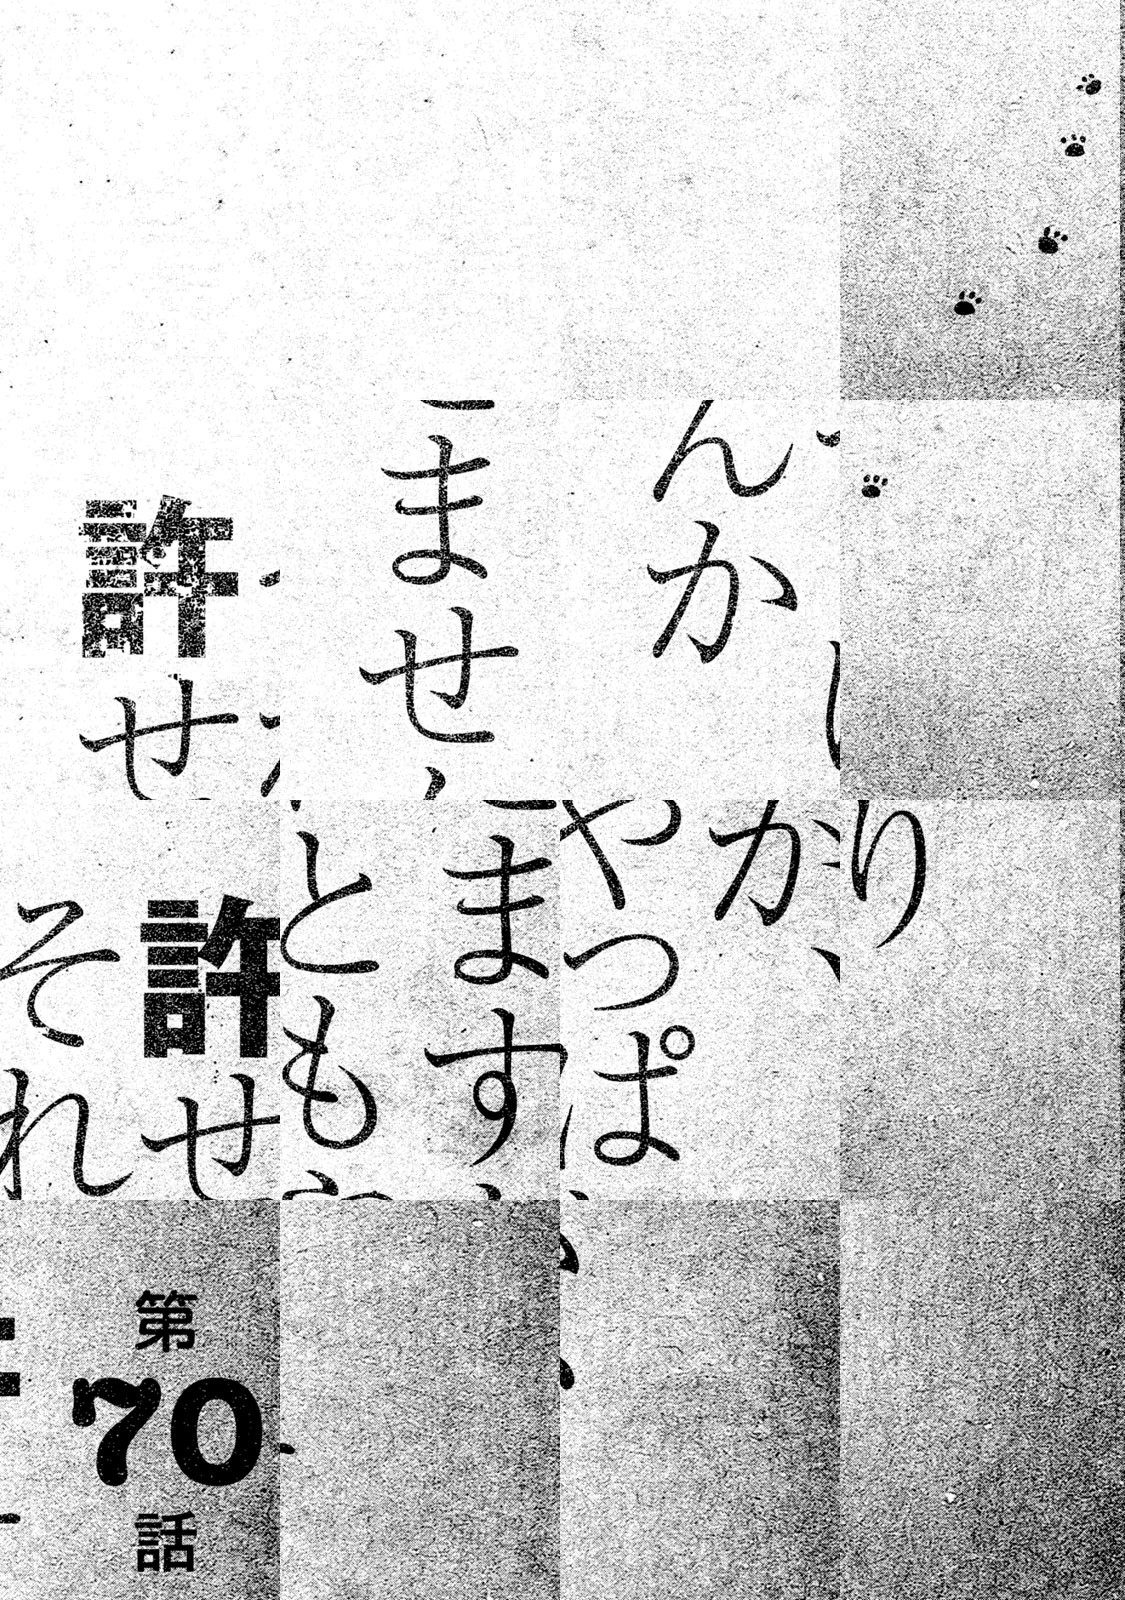 んか
ませ
許せ
り
か、
やっぱ
ます
とも
許せ
それ
第70話